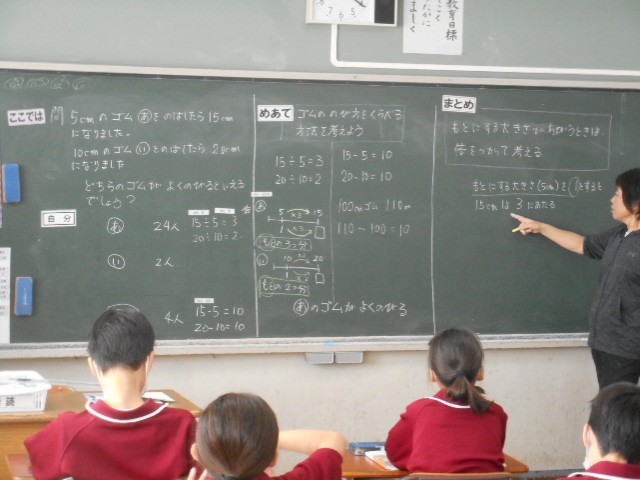 教育目標
ここでは
問
5cmのゴムあをのばしたら15cm
になりました。
10cmのゴムいをのばしたら20cm
になりました
どちらのゴムが よくのびるといえる
でしょう?
自分
あ 24人 15÷5=3
20÷10=2
い 2人
4人 15-5=10
20-10=10
めあて
ゴムののび方をくらべる
方法を考えよう
15÷5=3
20÷10=2
15-5=10
20-10=10
100cmゴム 110m
110-100=10
あ
5 ×3 15
1
い
10 20
1
あのゴムがよくのびる
まとめ
もとにする大きさがちがうときは、
倍をつかって考える
もとにする大きさ(5cm)を1とすると
15cmは3にあたる